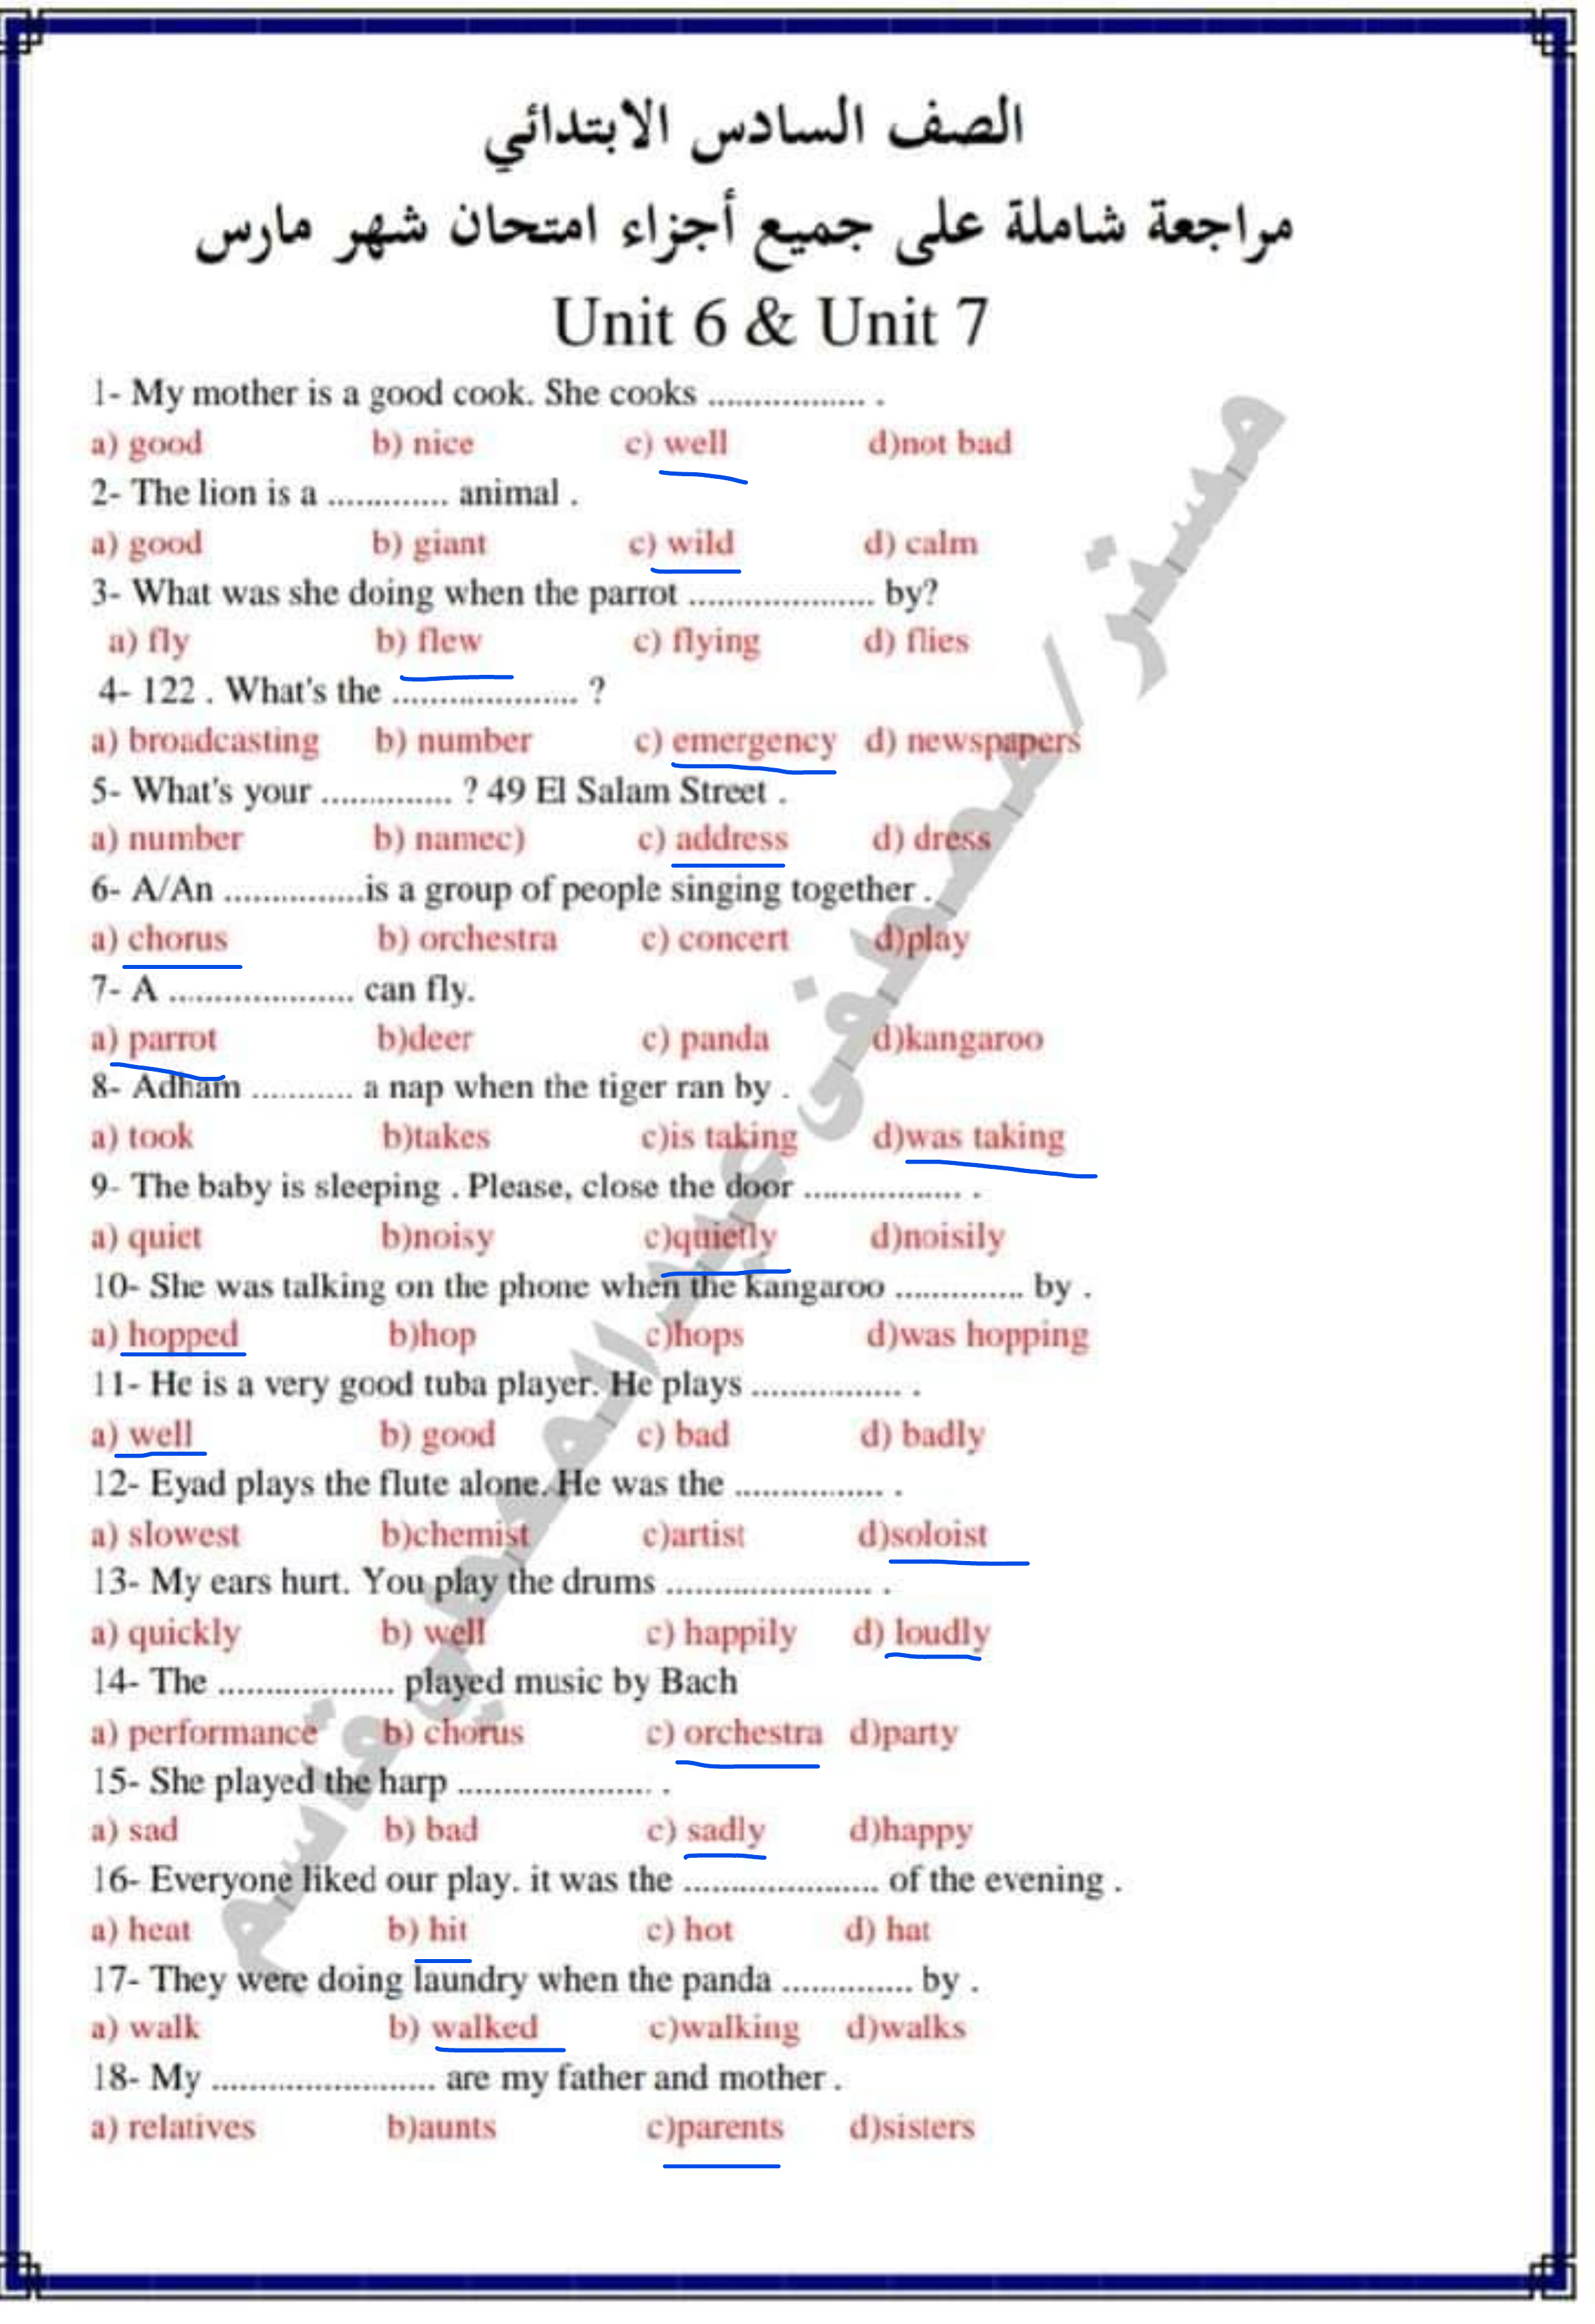 الصف السادس الابتدائي
مراجعة شاملة على جميع أجزاء امتحان شهر مارس
Unit 6 & Unit 7
1- My mother is a good cook. She cooks ................. .
a) good b) nice c) well d)not bad
2- The lion is a ............. animal .
a) good b) giant c) wild d) calm
3- What was she doing when the parrot .................... by?
a) fly b) flew c) flying d) flies
4- 122 . What's the .................... ?
a) broadcasting b) number c) emergency d) newspapers
5- What's your .............. ? 49 El Salam Street .
a) number b) namec) c) address d) dress
6- A/An ...............is a group of people singing together .
a) chorus b) orchestra c) concert d)play
7- A .................... can fly.
a) parrot b)deer c) panda d)kangaroo
8- Adham ........... a nap when the tiger ran by .
a) took b)takes c)is taking d)was taking
9- The baby is sleeping . Please, close the door ................. .
a) quiet b)noisy c)quietly d)noisily
10- She was talking on the phone when the kangaroo .............. by .
a) hopped b)hop c)hops d)was hopping
11- He is a very good tuba player. He plays ................ .
a) well b) good c) bad d) badly
12- Eyad plays the flute alone. He was the ................ .
a) slowest b)chemist c)artist d)soloist
13- My ears hurt. You play the drums ...................... .
a) quickly b) well c) happily d) loudly
14- The ................... played music by Bach
a) performance b) chorus c) orchestra d)party
15- She played the harp ..................... .
a) sad b) bad c) sadly d)happy
16- Everyone liked our play. it was the ..................... of the evening .
a) heat b) hit c) hot d) hat
17- They were doing laundry when the panda .............. by .
a) walk b) walked c)walking d)walks
18- My ........................ are my father and mother .
a) relatives b)aunts c)parents d)sisters
مستر/مصطفى عبد المعطي قاسم